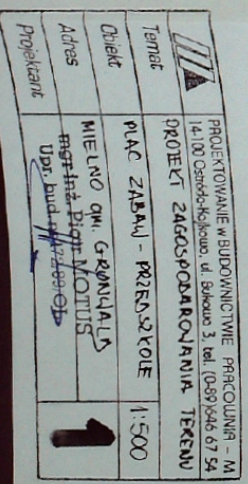 PROJEKTOWANIE w BUDOWNICTWIE PRACOWNIA - M
14-100 Ostróda-Kajkowo, ul. Bukowa 3, tel. (0-89)646 67 54
Temat PROJEKT ZAGOSPODAROWANIA TERENU
Obiekt PLAC ZABAW - PRZEDSZKOLE 1:500
Adres MIELNO gm. GRUNWALD
Projektant mgr inż. Piotr MOTUS
Upr. bud. 1